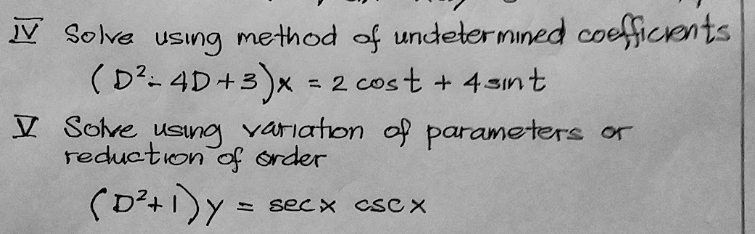 IV Solve using method of undetermined coefficients
(D²-4D+3)x = 2 cost + 4sint
V Solve using variation of parameters or
reduction of order
(D²+1)y = secx cscx